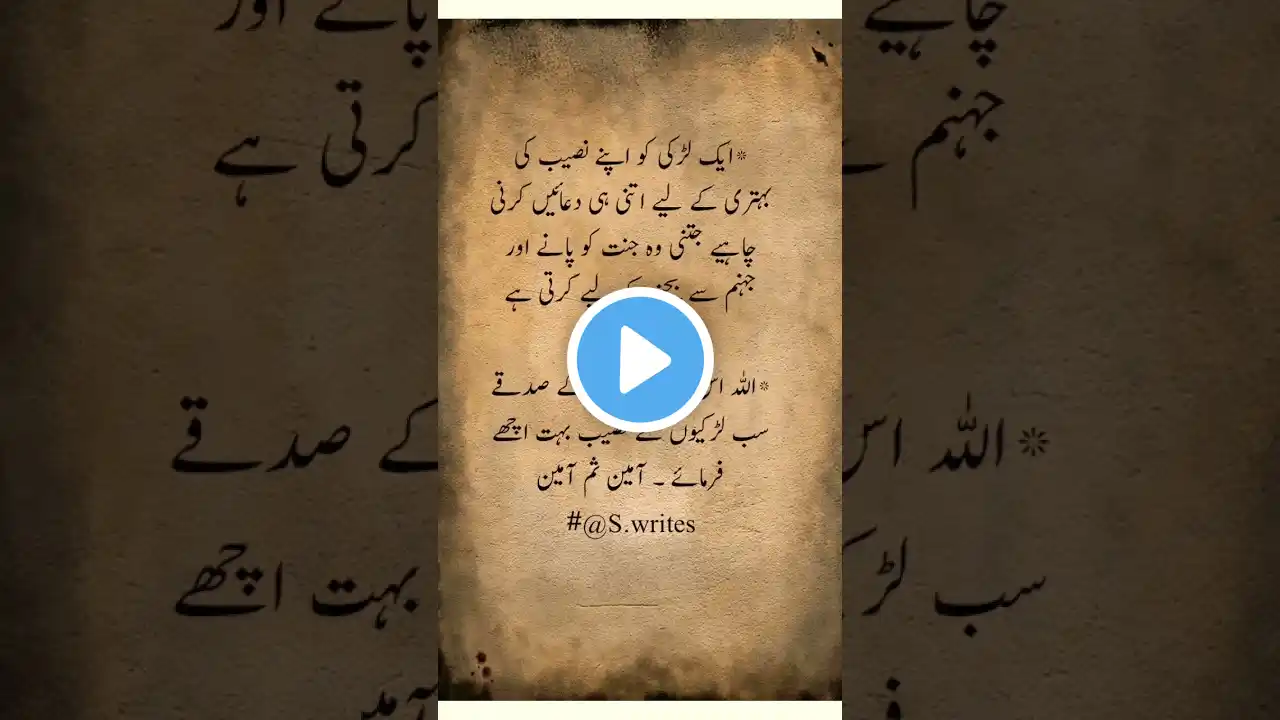 *ایک لڑکی کو اپنے نصیب کی
بہتری کے لیے اتنی ہی دعائیں کرنی
چاہیے جتنی وہ جنت کو پانے اور
جہنم سے لیے کرتی ہے
*اللہ کے صدقے
سب لڑکیوں کے نصیب بہت اچھے
فرمائے ۔ آمین ثم آمین
#@S.writes